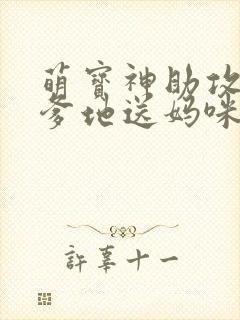 萌寶神助攻
爹地送媽咪
許辜十一